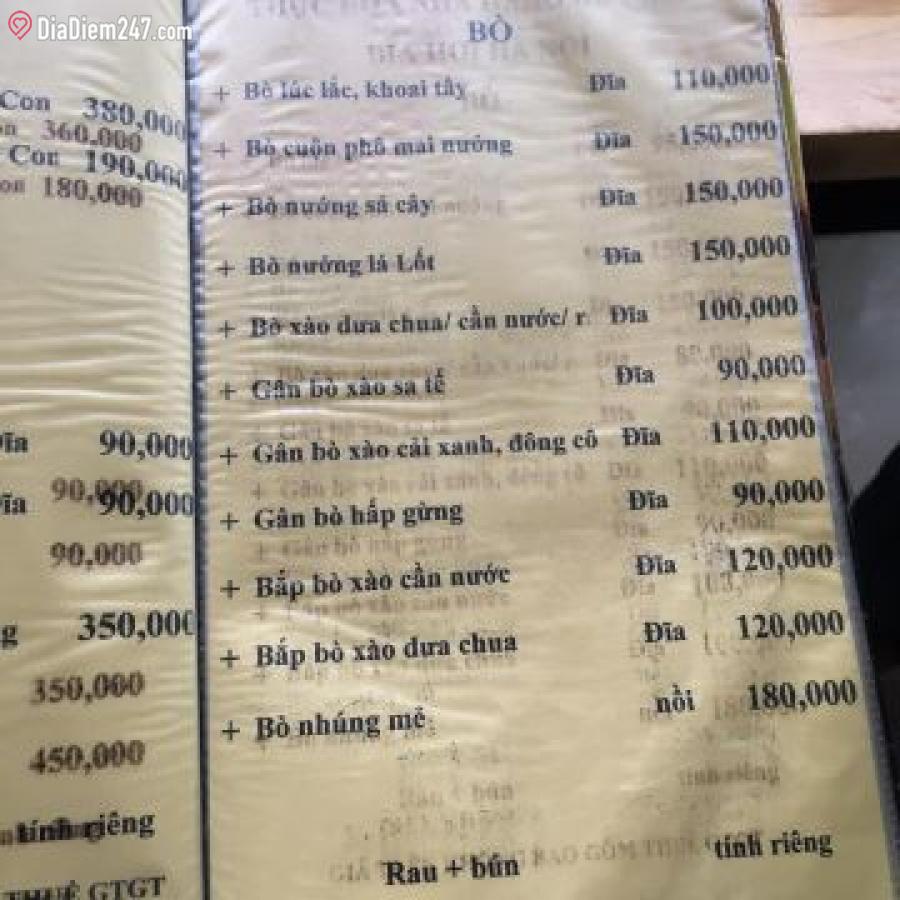 DiaDiem247.com
Con 380,000
360.000
Con 190,000
180,000
90,000
90,000
90,000
90,000
350,000
350,000
450,000
tính riêng
THUẾ GTGT
BÒ
+ Bò lúc lắc, khoai tây Đĩa 110,000
+ Bò cuộn phô mai nướng Đĩa 150,000
+ Bò nướng sả cây Đĩa 150,000
+ Bò nướng lá Lốt Đĩa 150,000
+ Bò xào dưa chua/ cần nước/ r Đĩa 100,000
+ Gân bò xào sa tế Đĩa 90,000
+ Gân bò xào cải xanh, đông cô Đĩa 110,000
+ Gân bò hấp gừng Đĩa 90,000
+ Bắp bò xào cần nước Đĩa 120,000
+ Bắp bò xào dưa chua Đĩa 120,000
+ Bò nhúng mẻ nồi 180,000
Rau + bún tính riêng